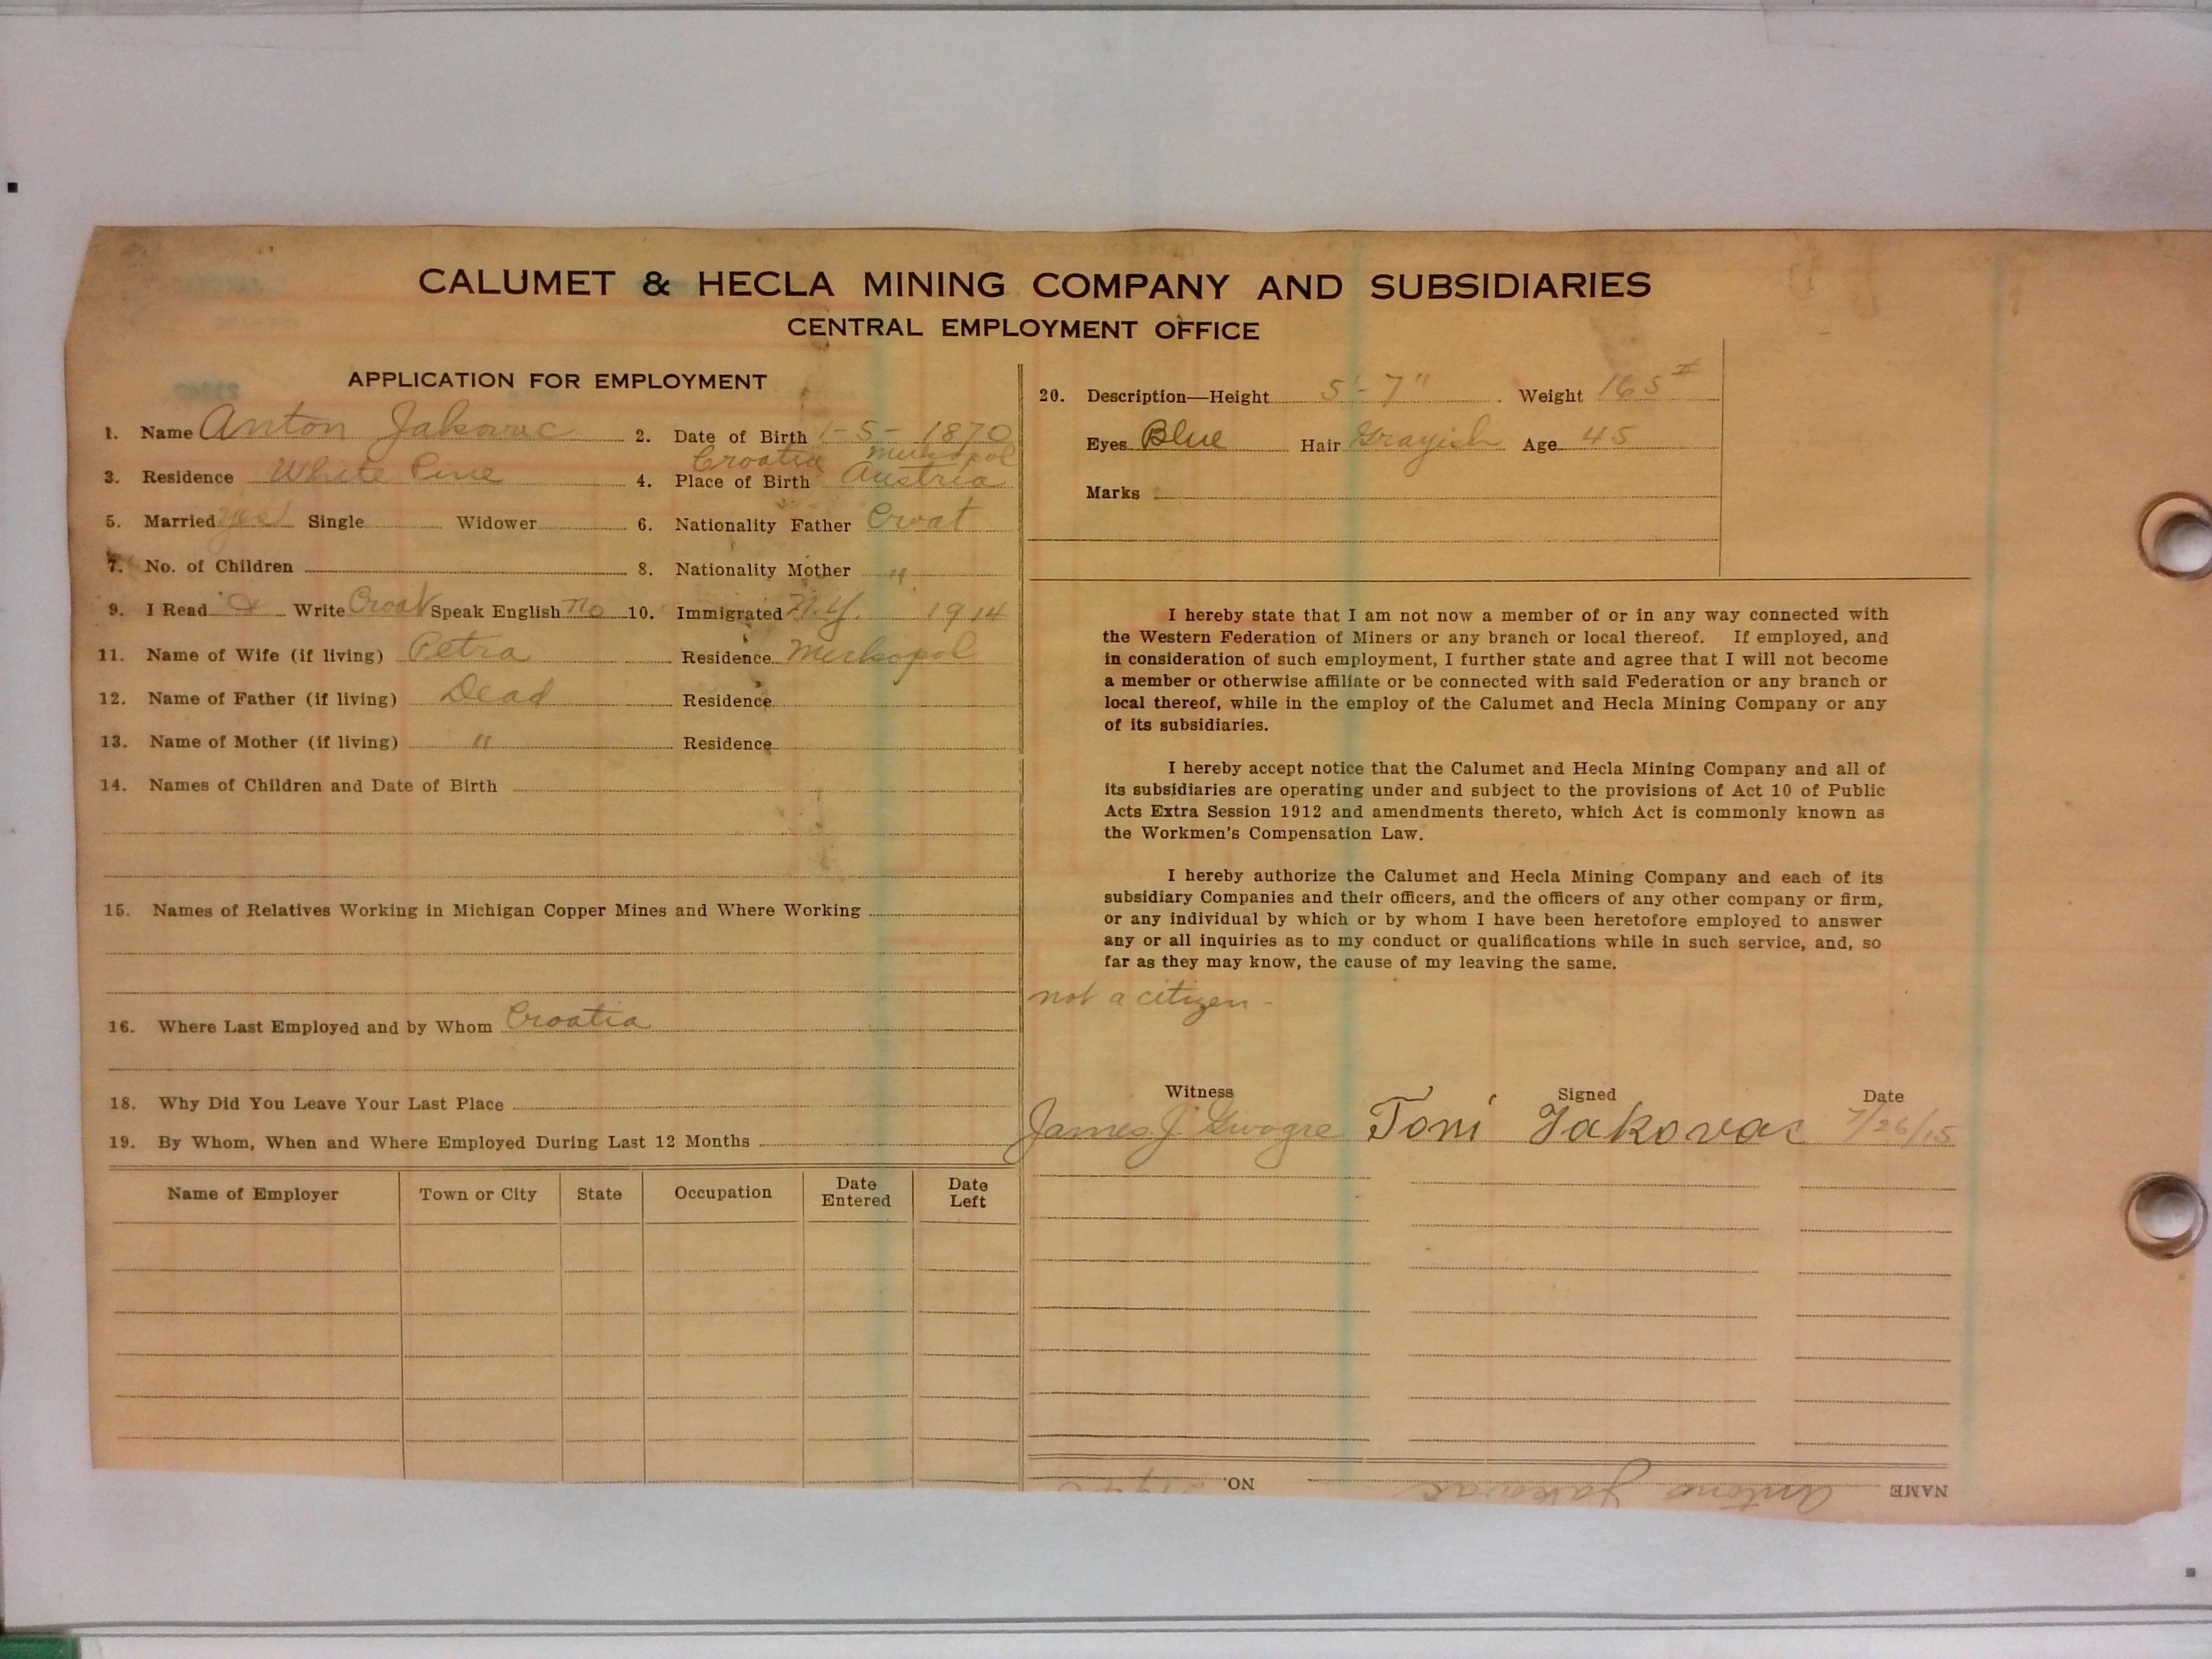 CALUMET & HECLA MINING COMPANY AND SUBSIDIARIES
CENTRAL EMPLOYMENT OFFICE
APPLICATION FOR EMPLOYMENT
1. Name Anton Jakovac 2. Date of Birth 1-5-1870
Croatia Merkopol
3. Residence White Pine 4. Place of Birth Austria
5. Married yes Single Widower 6. Nationality Father Croat
7. No. of Children 8. Nationality Mother "
9. I Read & Write Croat Speak English no 10. Immigrated N.Y. 1914
11. Name of Wife (if living) Petra Residence Merkopol
12. Name of Father (if living) Dead Residence
13. Name of Mother (if living) " Residence
14. Names of Children and Date of Birth
15. Names of Relatives Working in Michigan Copper Mines and Where Working
16. Where Last Employed and by Whom Croatia
18. Why Did You Leave Your Last Place
19. By Whom, When and Where Employed During Last 12 Months
Name of Employer Town or City State Occupation Date Entered Date Left
20. Description—Height 5'-7" Weight 165#
Eyes Blue Hair Grayish Age 45
Marks
I hereby state that I am not now a member of or in any way connected with
the Western Federation of Miners or any branch or local thereof. If employed, and
in consideration of such employment, I further state and agree that I will not become
a member or otherwise affiliate or be connected with said Federation or any branch or
local thereof, while in the employ of the Calumet and Hecla Mining Company or any
of its subsidiaries.
I hereby accept notice that the Calumet and Hecla Mining Company and all of
its subsidiaries are operating under and subject to the provisions of Act 10 of Public
Acts Extra Session 1912 and amendments thereto, which Act is commonly known as
the Workmen's Compensation Law.
I hereby authorize the Calumet and Hecla Mining Company and each of its
subsidiary Companies and their officers, and the officers of any other company or firm,
or any individual by which or by whom I have been heretofore employed to answer
any or all inquiries as to my conduct or qualifications while in such service, and, so
far as they may know, the cause of my leaving the same.
not a citizen -
Witness Signed Date
James J. Toni Jakovac 7/26/15
NAME Antono Jakovac NO.